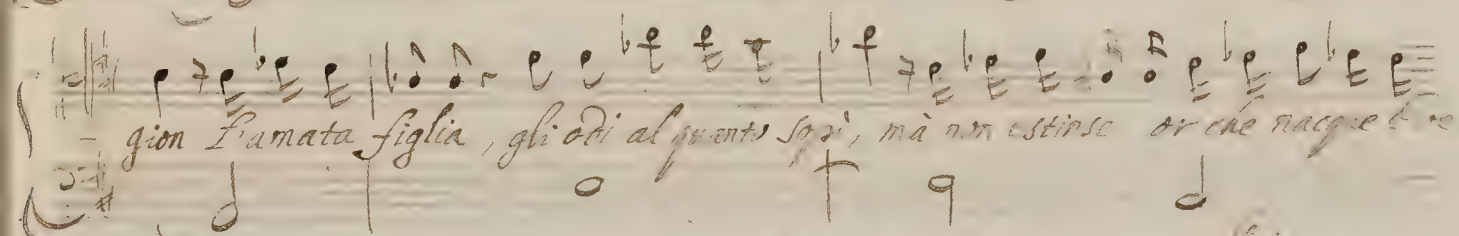 - gion l'amata figlia, gli odi al quanto sopì, mà non estinse or che nacque